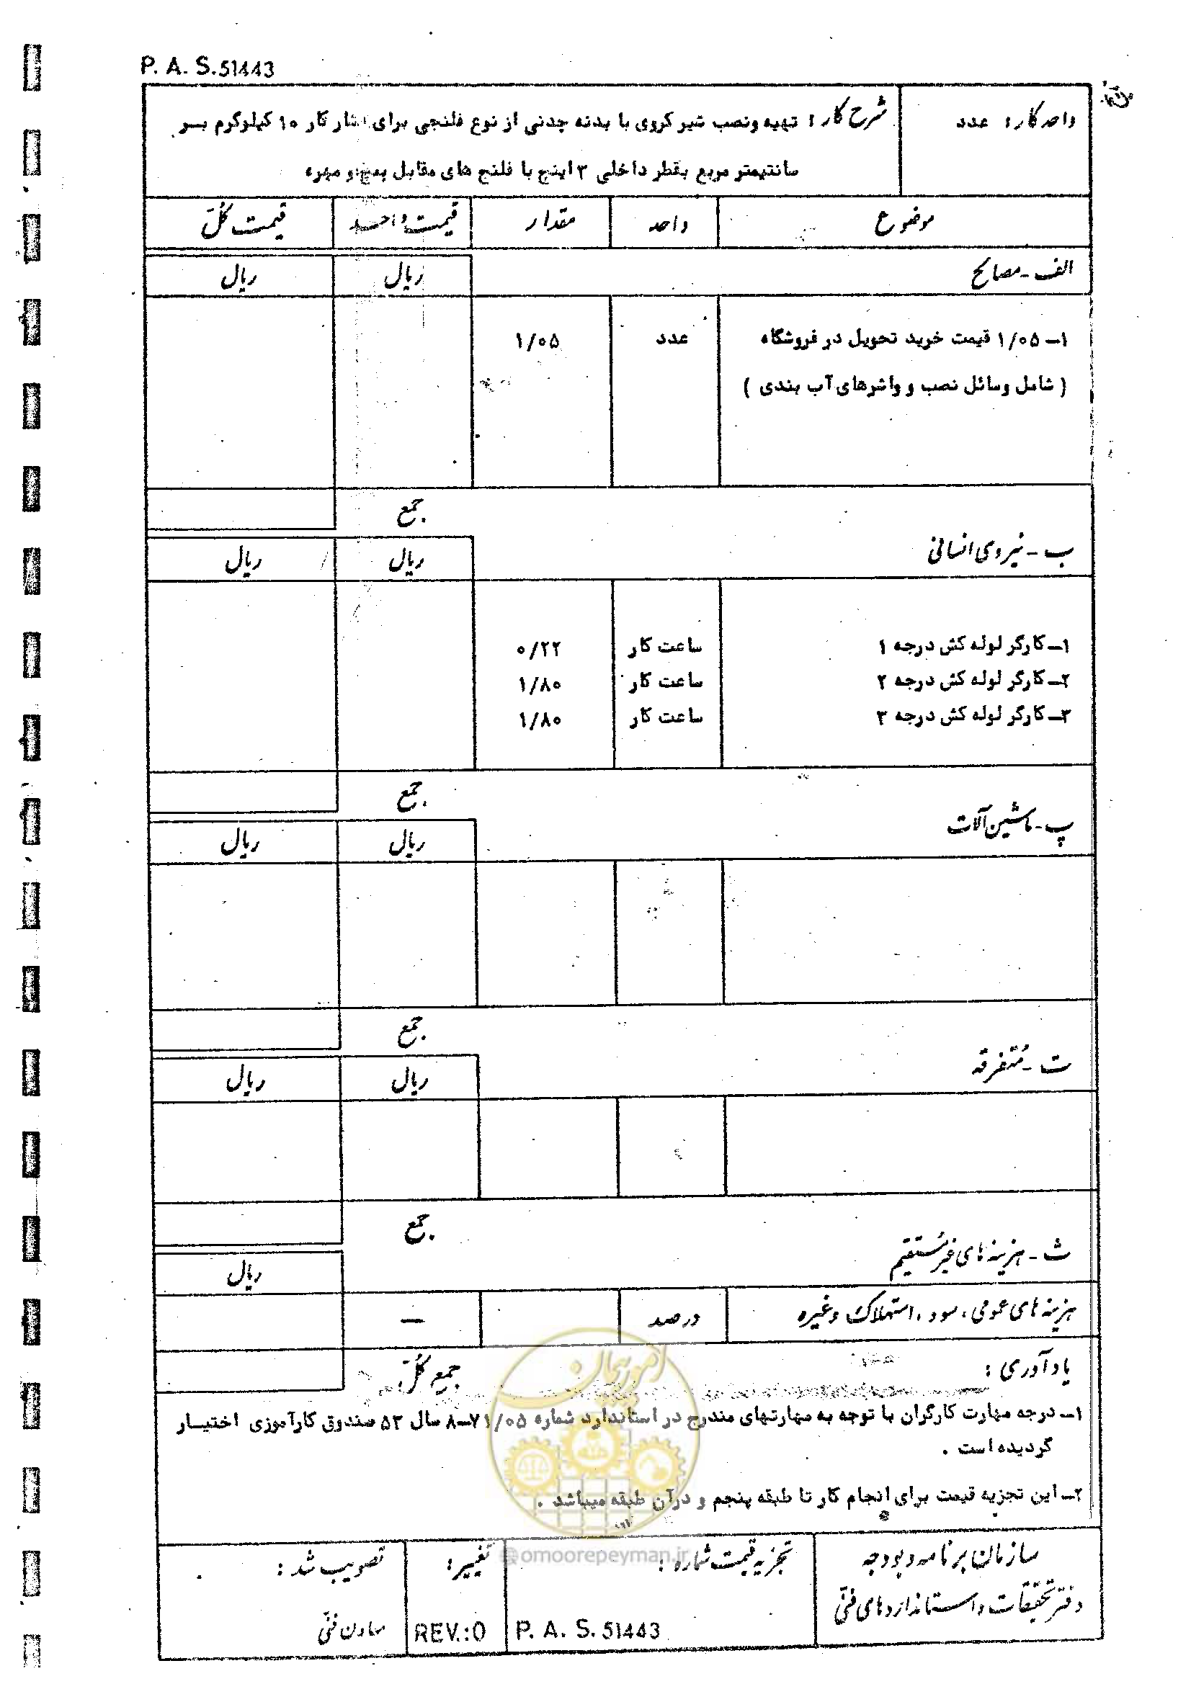 P. A. S. 51443
واحد کار : عدد
شرح کار : تهیه ونصب شیر کروی با بدنه چدنی از نوع فلنجی برای فشار کار ۱۰ کیلوگرم بــر
سانتیمتر مربع بقطر داخلی ۳ اینچ با فلنج های مقابل پیچ و مهره
موضوع واحد مقدار قیمت واحد قیمت کل
الف - مصالح ریال ریال
۱ــ ۱/۰۵ قیمت خرید تحویل در فروشگاه عدد ۱/۰۵
( شامل وسائل نصب و واشرهای آب بندی )
جمع
ب - نیروی انسانی ریال ریال
۱ــ کارگر لوله کش درجه ۱ ساعت کار ۰/۲۲
۲ــ کارگر لوله کش درجه ۲ ساعت کار ۱/۸۰
۳ــ کارگر لوله کش درجه ۳ ساعت کار ۱/۸۰
جمع
پ - ماشین آلات ریال ریال
جمع
ت - متفرقه ریال ریال
جمع
ث - هزینه های غیر مستقیم ریال
هزینه های عمومی ، سود ، استهلاک وغیره درصد —
جمع کل :
یادآوری :
۱ــ درجه مهارت کارگران با توجه به مهارتهای مندرج در استاندارد شماره ۷۱/۰۵ــ۸ سال ۵۳ صندوق کارآموزی اختیــار
گردیده است .
۲ــ این تجزیه قیمت برای انجام کار تا طبقه پنجم و درآن طبقه میباشد .
امور پیمان
@omoorepeyman.ir
سازمان برنامه و بودجه
دفتر تحقیقات و استانداردهای فنی
تجزیه قیمت شماره :
P. A. S. 51443
تغییر :
REV.: 0
تصویب شد :
معاون فنی